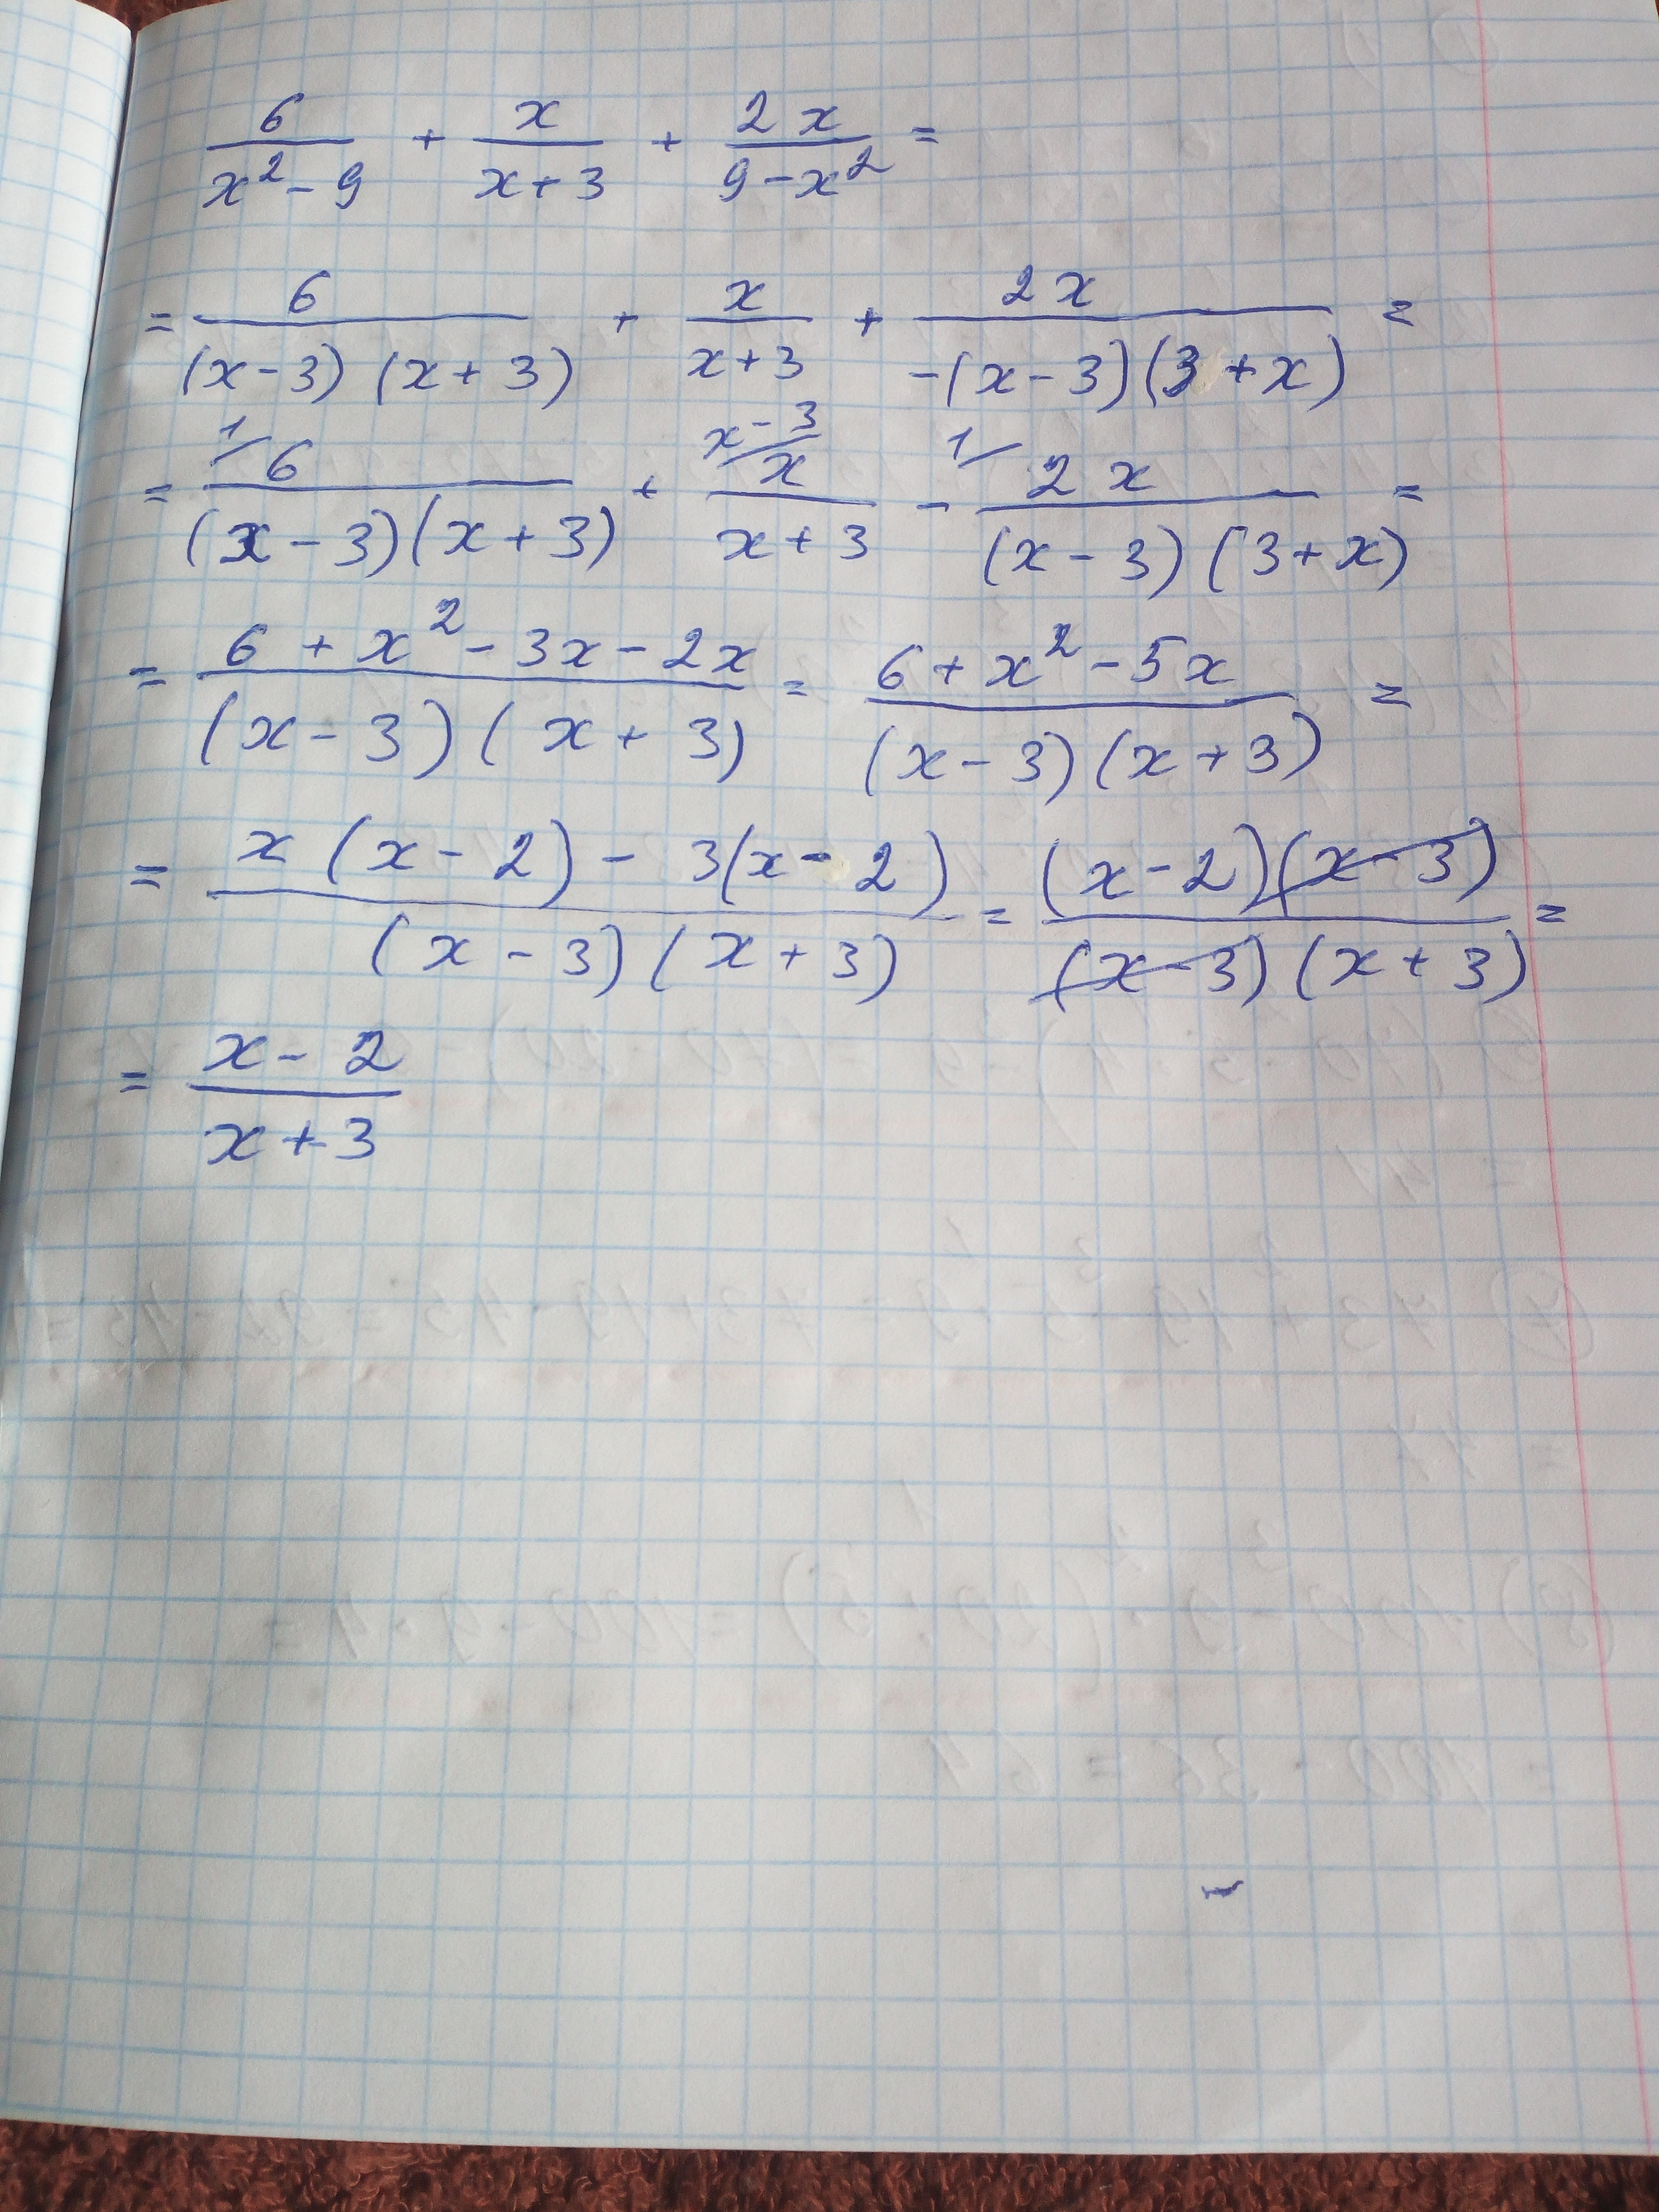 6/(x²-9) + x/(x+3) + 2x/(9-x²) =
= 6/((x-3)(x+3)) + x/(x+3) + 2x/(-(x-3)(3+x)) =
= ¹/6/((x-3)(x+3)) + ˣ⁻³/x/(x+3) - ¹/2x/((x-3)(3+x)) =
= (6+x²-3x-2x)/((x-3)(x+3)) = (6+x²-5x)/((x-3)(x+3)) =
= (x(x-2)-3(x-2))/((x-3)(x+3)) = ((x-2)(x-3))/((x-3)(x+3)) =
= (x-2)/(x+3)